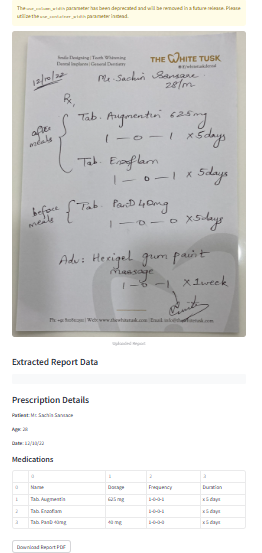 The use_column_width parameter has been deprecated and will be removed in a future release. Please
utilize the use_container_width parameter instead.
Smile Designing | Tooth Whitening
Dental Implants | General Dentistry
THE WHITE TUSK
12/10/22
Mr. Sachin Sansare
28/M
Rx,
after meals
Tab. Augmentin 625mg
1 - 0 - 1 x 5days
Tab. Enzoflam
1 - 0 - 1 x 5days
before meals
Tab. PanD 40mg
1 - 0 - 0 x 5days
Adv: Hexigel gum paint
massage
1 - 0 - 1 x 1week
Uploaded Report
Extracted Report Data
Prescription Details
Patient: Mr. Sachin Sansace
Age: 28
Date: 12/10/22
Medications
0 1 2 3
0 Name Dosage Frequency Duration
1 Tab. Augmentin 625 mg 1-0-0-1 x 5 days
2 Tab. Enzoflam 1-0-0-1 x 5 days
3 Tab. PanD 40mg 40 mg 1-0-0-0 x 5 days
Download Report PDF